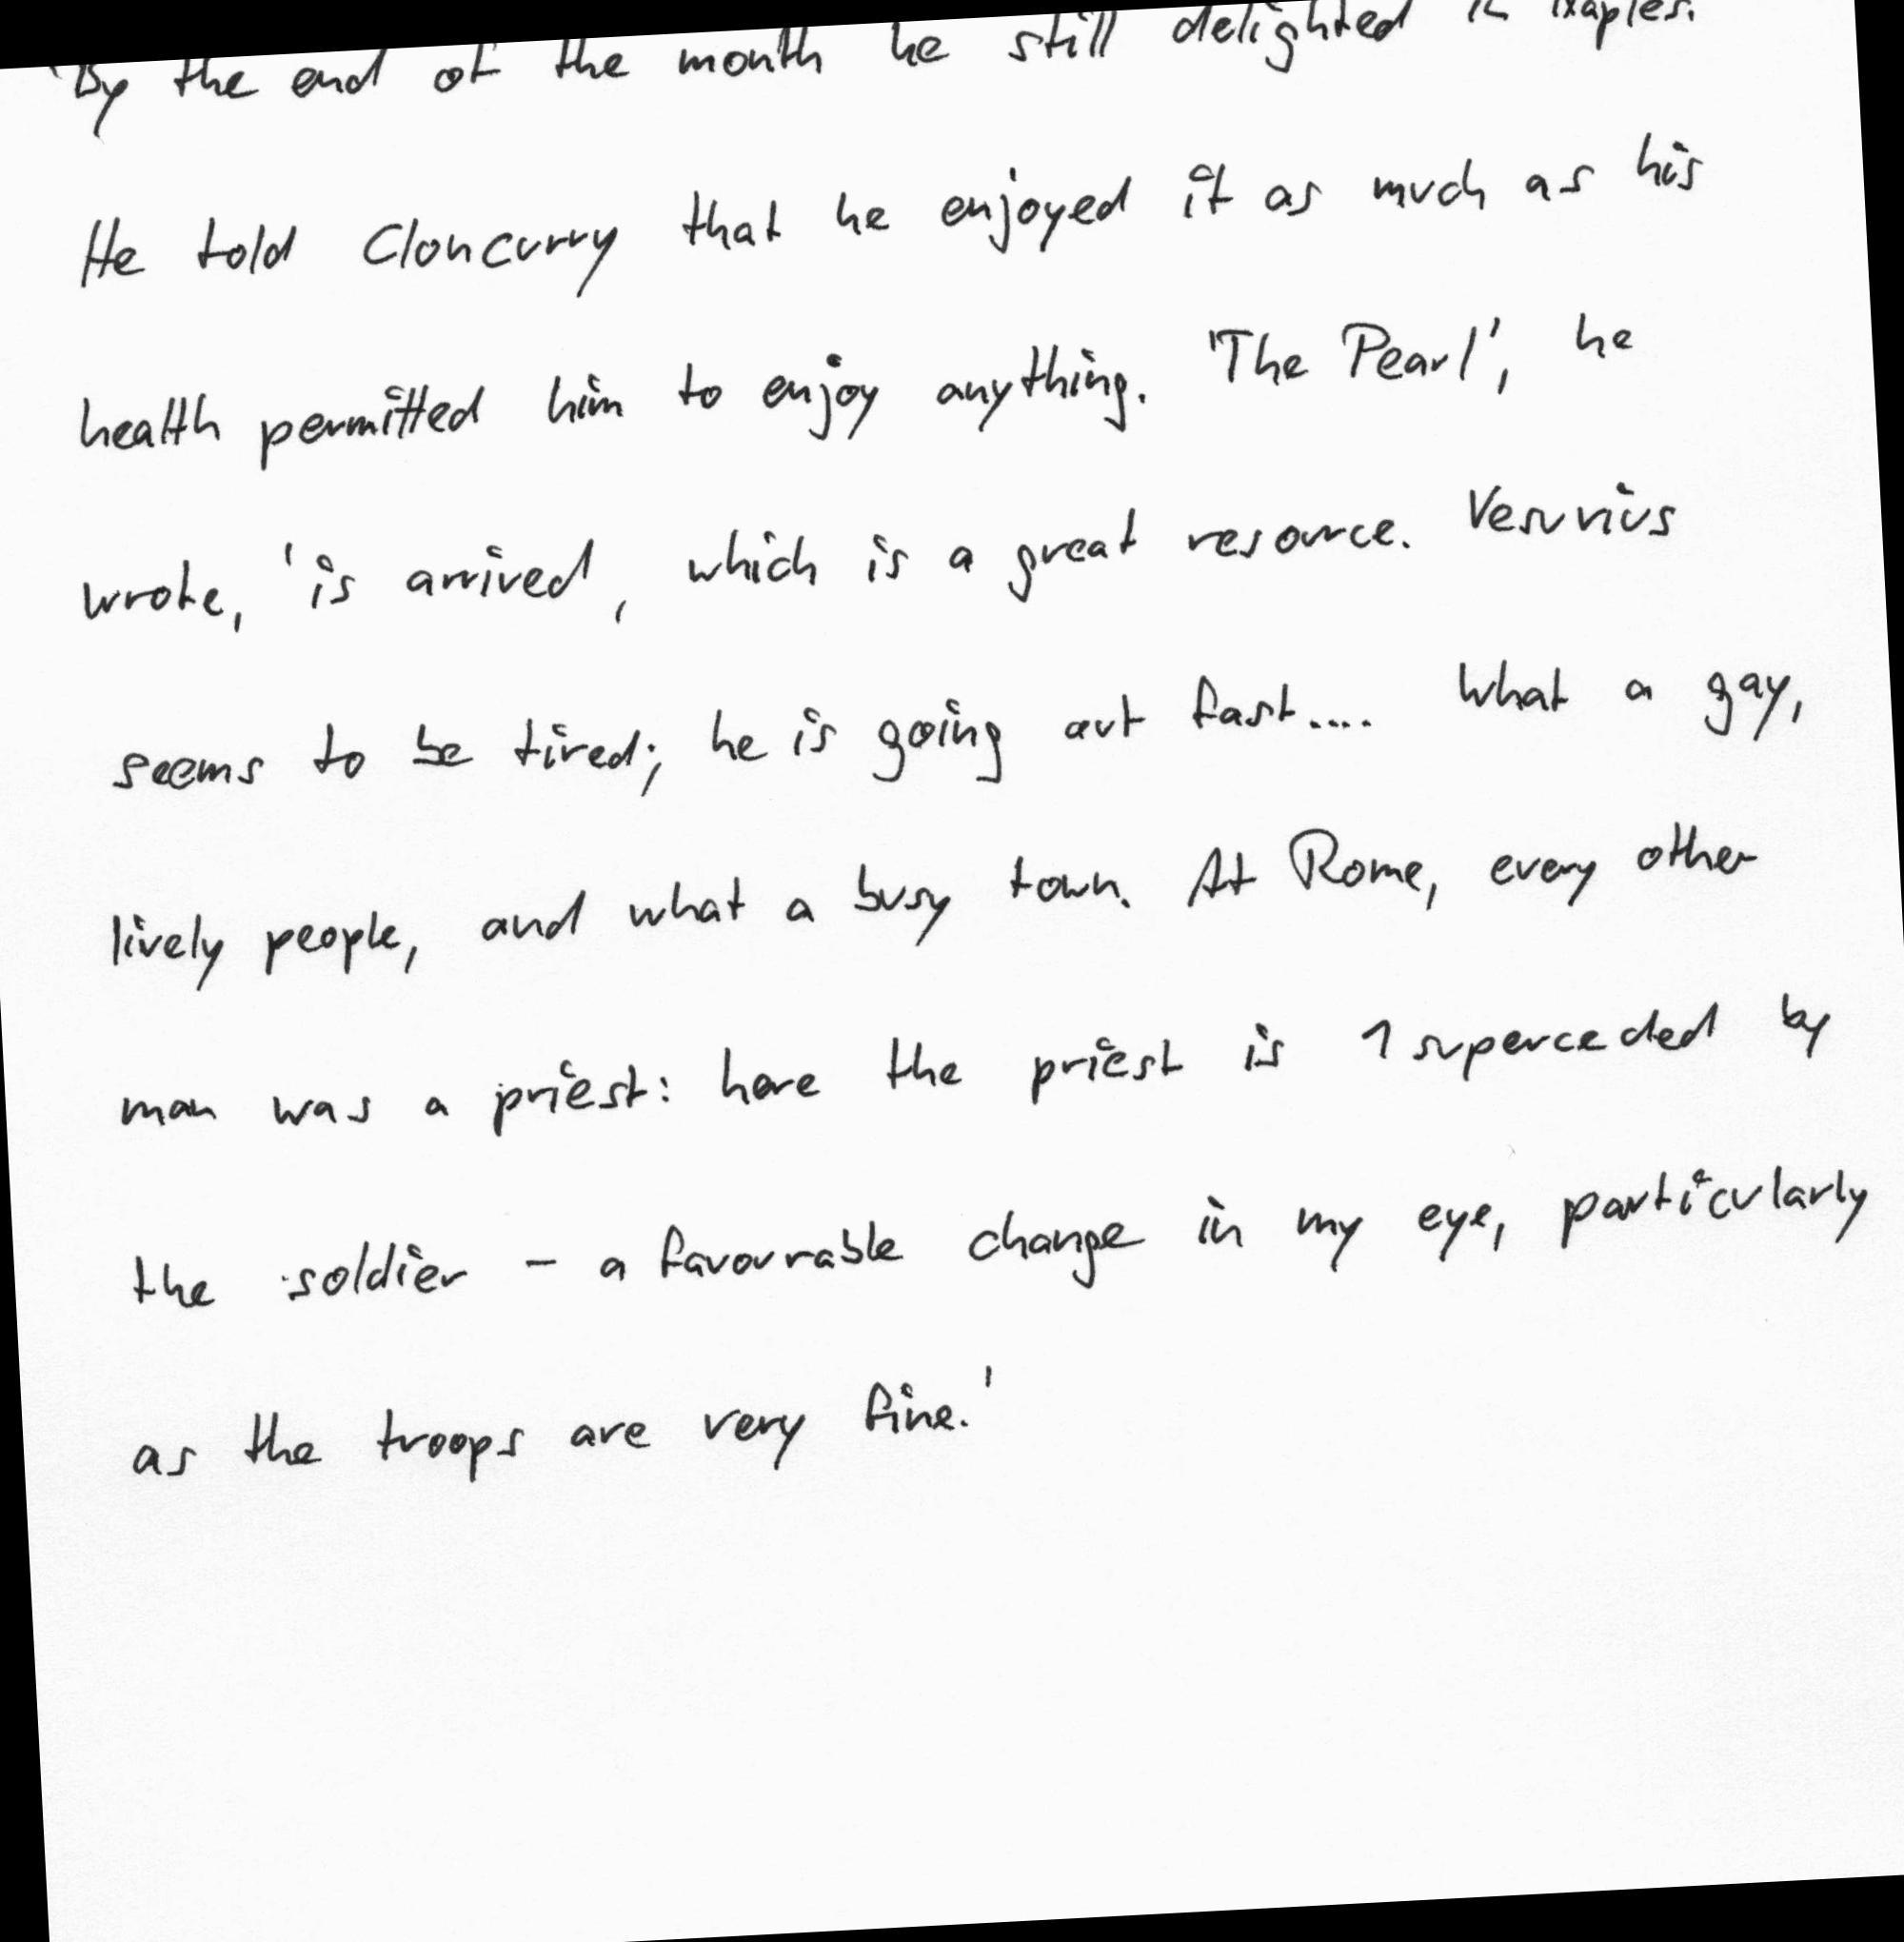 By the end of the month he still delighted in Naples.
He told Cloncurry that he enjoyed it as much as his
health permitted him to enjoy anything. 'The Pearl', he
wrote, 'is arrived, which is a great resource. Vesuvius
seems to be tired; he is going out fast.... What a gay,
lively people, and what a busy town. At Rome, every other
man was a priest: here the priest is 1 superceded by
the soldier - a favourable change in my eye, particularly
as the troops are very fine.'